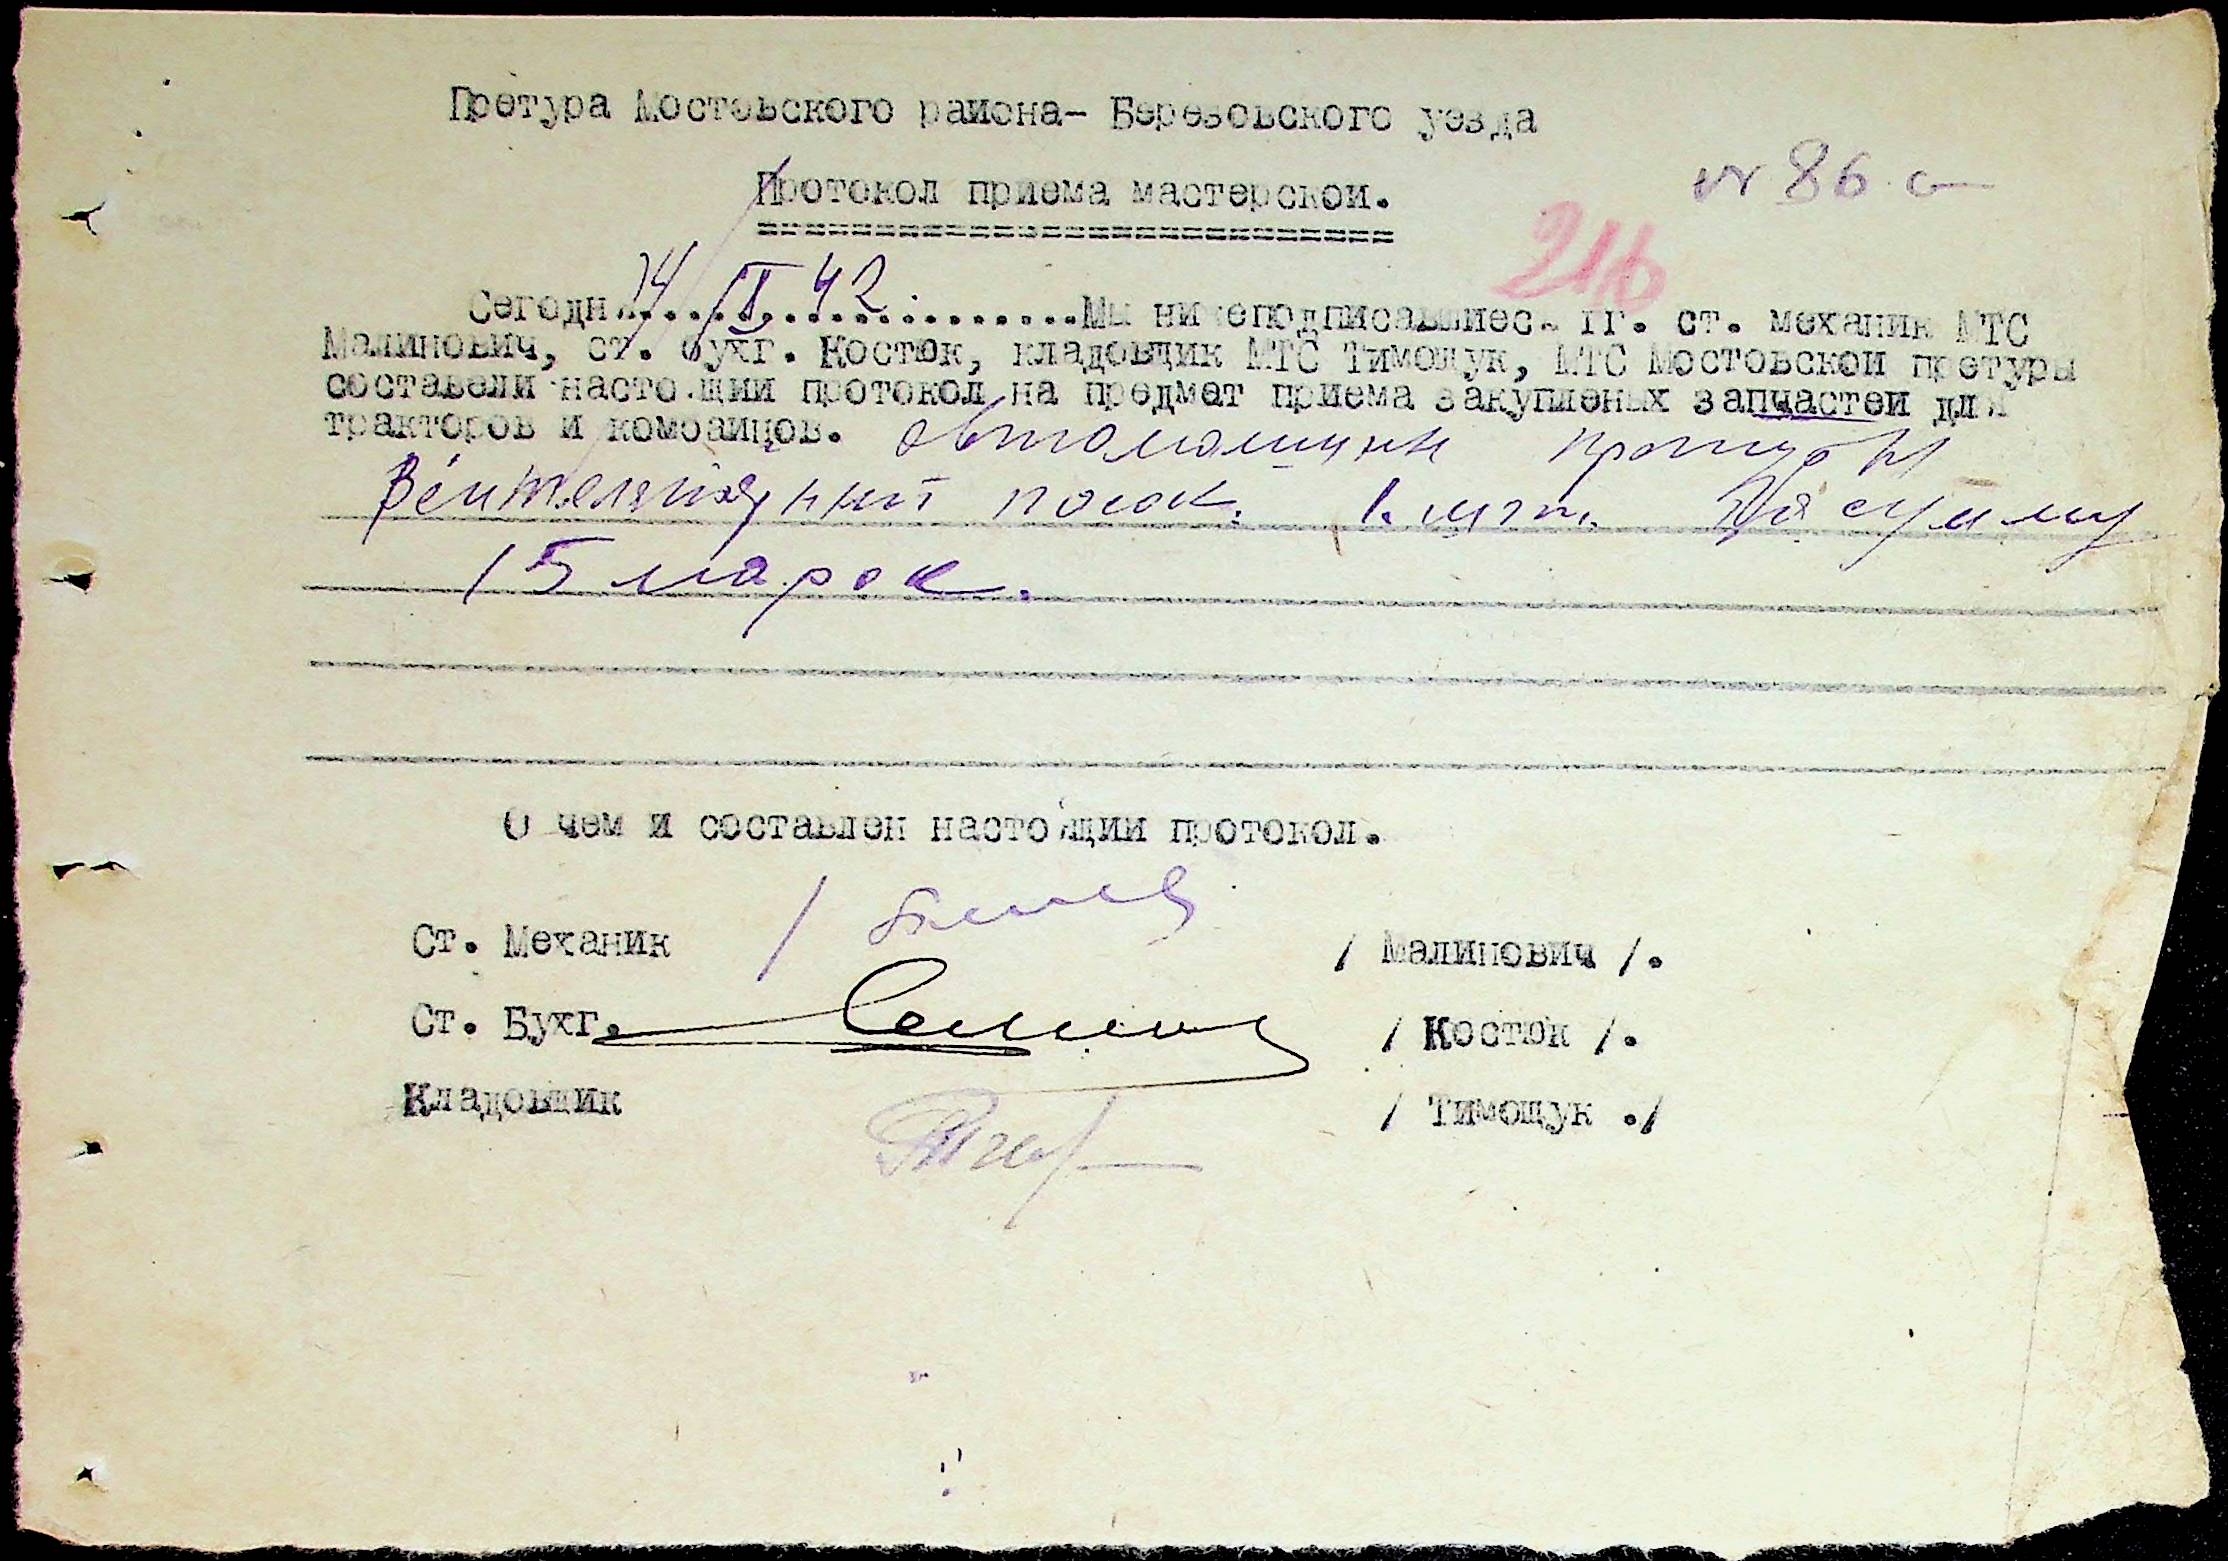 Претура Мостовского района- Березовского уезда
Протокол приема мастерской.
№ 86
216
Сегодня 14/II 42 Мы нижеподписавшиеся гг. ст. механик МТС
Малинович, ст. бухг. Костюк, кладовщик МТС Тимощук, МТС Мостовской претуры
составели настоящий протокол на предмет приема закупленых запчастей для
тракторов и комбайнов. автомашины претуры
Вентеляционый пояск. 1. шт. На сумму
15 марок.
О чем и составлен настоящий протокол.
Ст. Механик / / Малинович /.
Ст. Бухг. / Костюк /.
Кладовщик / Тимощук ./